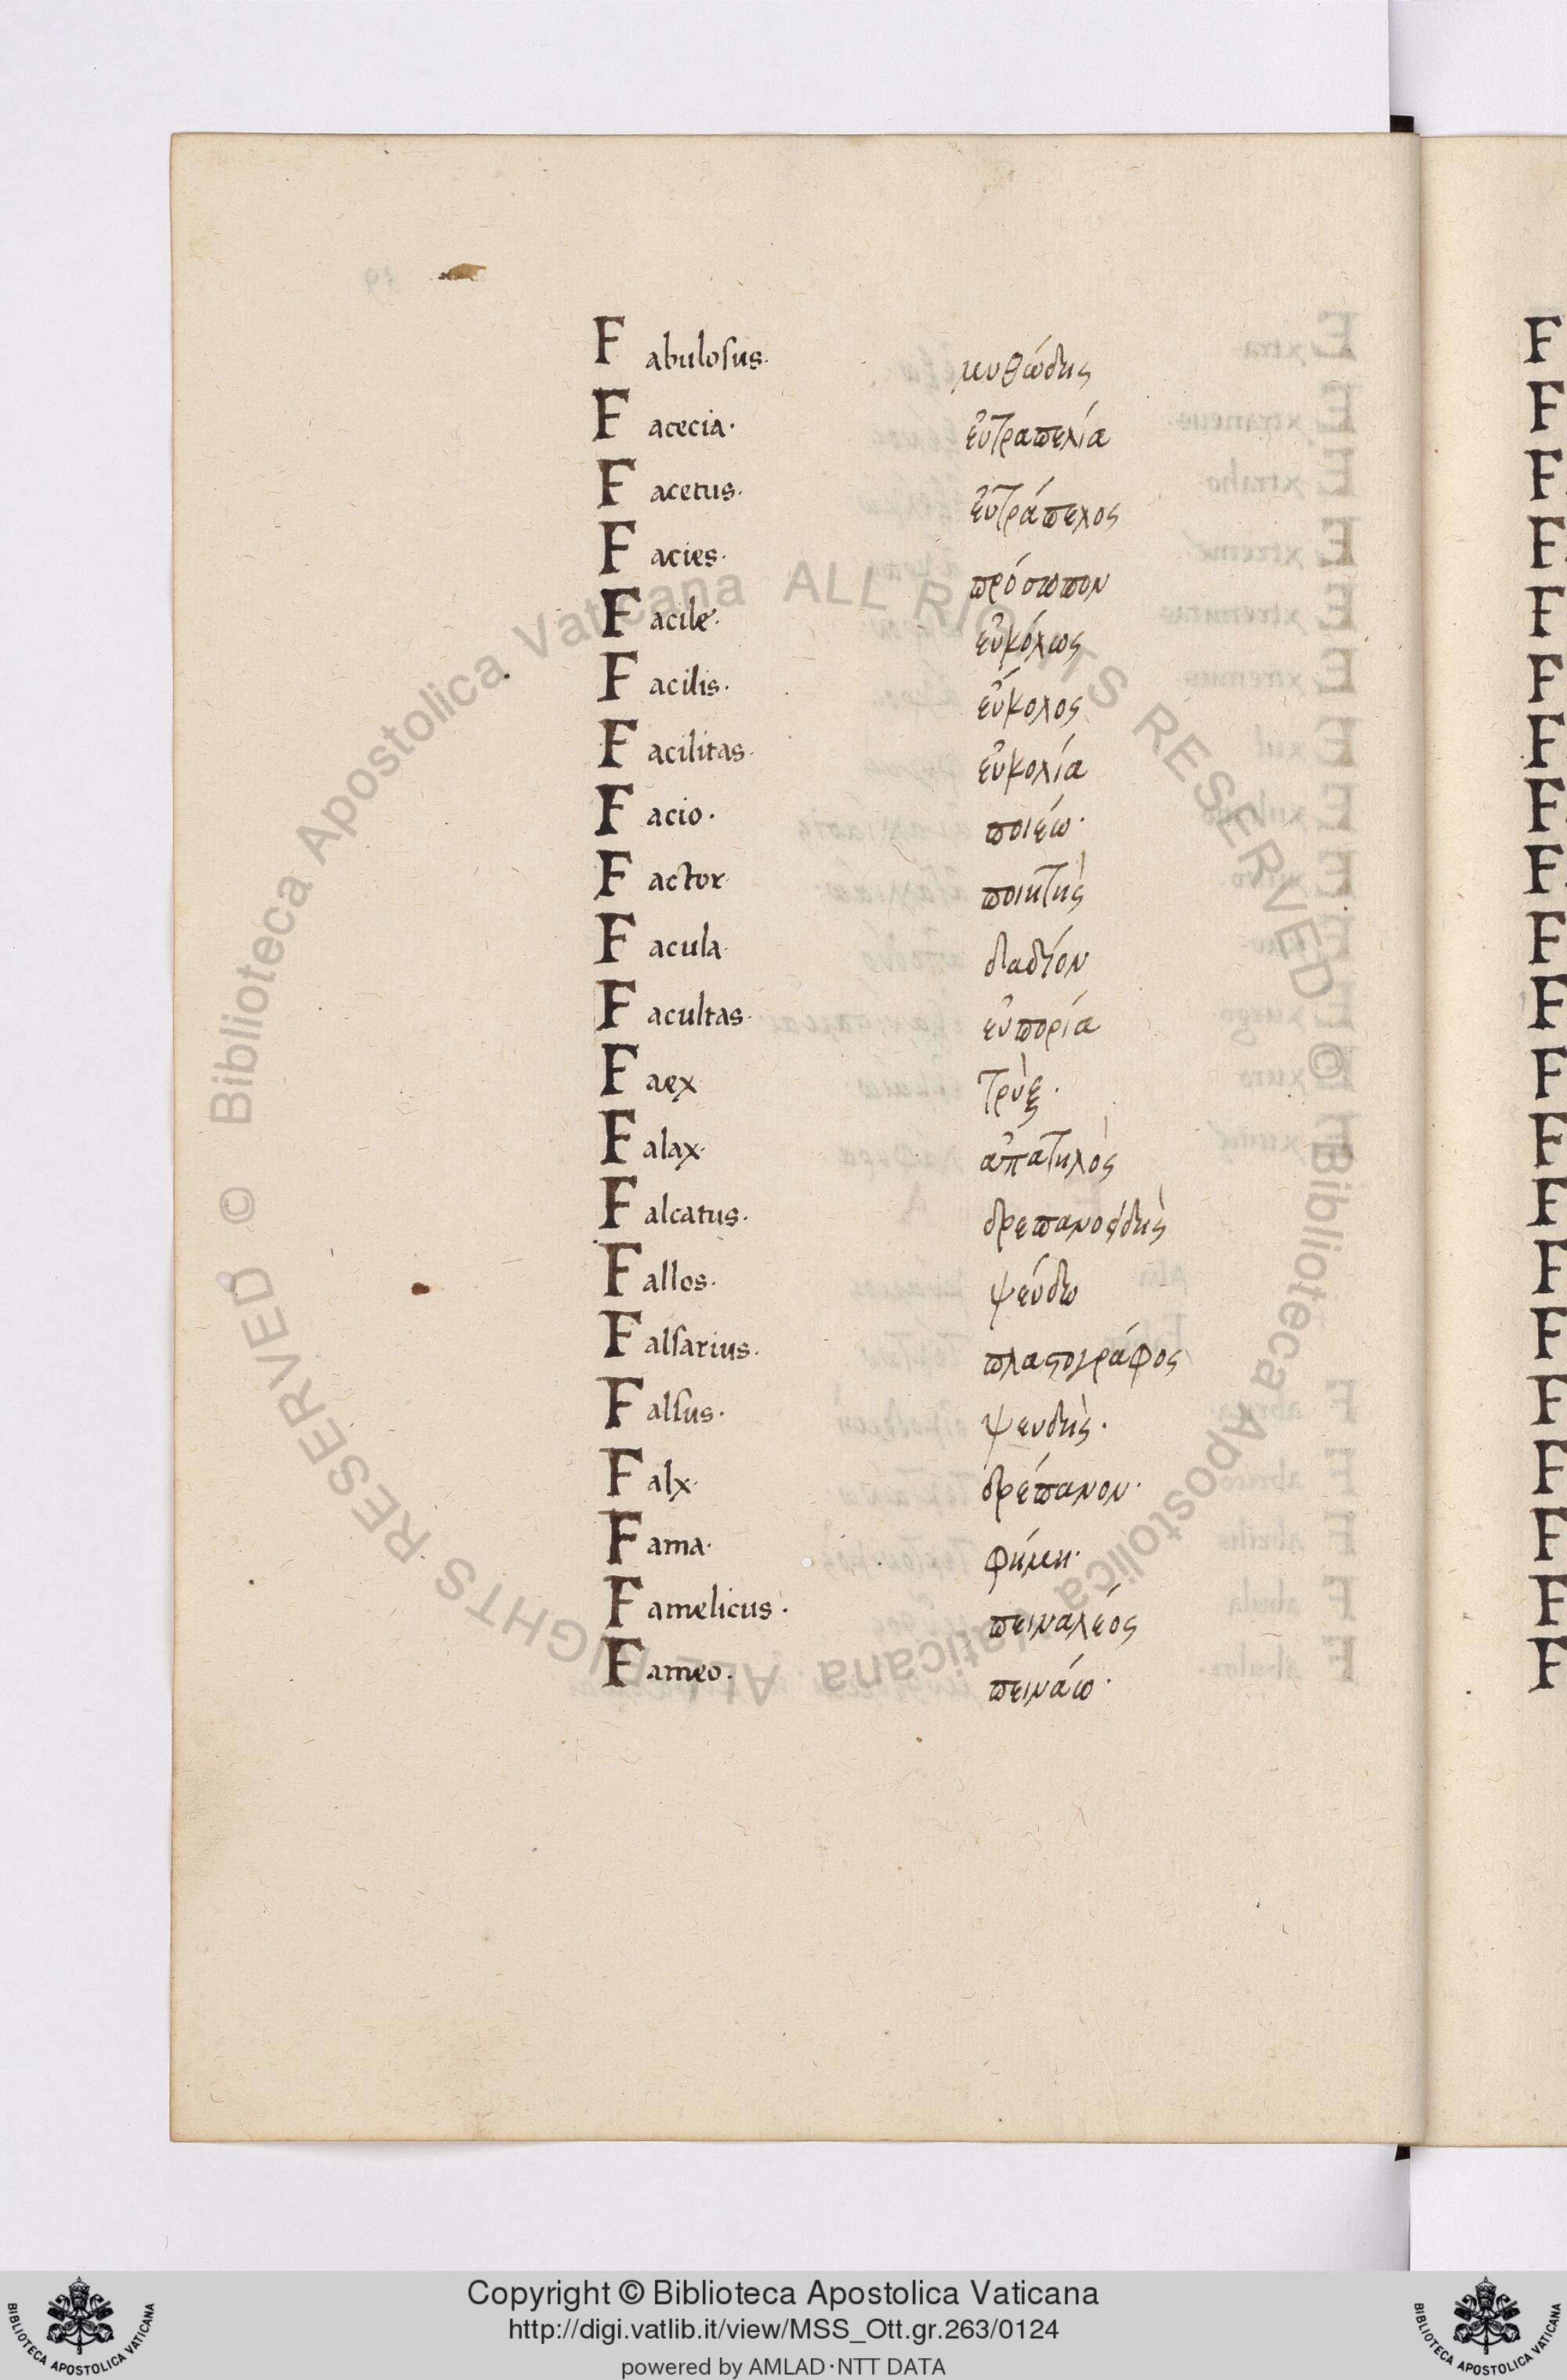 Fabulosus. μυθώδης
Facecia. εὐτραπελία
Facetus. εὐτράπελος
Facies. πρόσωπον
Facile. εὐκόλως
Facilis. εὔκολος
Facilitas. εὐκολία
Facio. ποιέω.
Factor. ποιητὴς
Facula. δαδίον
Facultas. εὐπορία
Faex τρὺξ.
Falax. ἀπατηλὸς
Falcatus. δρεπανοειδὴς
Fallos. ψεύδω
Falsarius. πλαστογράφος
Falsus. ψευδὴς.
Falx. δρέπανον.
Fama. φήμη.
Famelicus. πειναλέος
Fameo. πεινάω.
© Biblioteca Apostolica Vaticana ALL RIGHTS RESERVED © Biblioteca Apostolica Vaticana ALL RIGHTS RESERVED
Copyright © Biblioteca Apostolica Vaticana
http://digi.vatlib.it/view/MSS_Ott.gr.263/0124
powered by AMLAD·NTT DATA
BIBLIOTECA APOSTOLICA VATICANA
BIBLIOTECA APOSTOLICA VATICANA